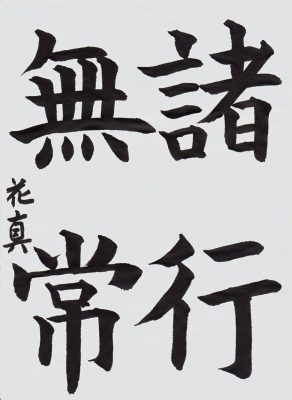 諸行
無常
花真